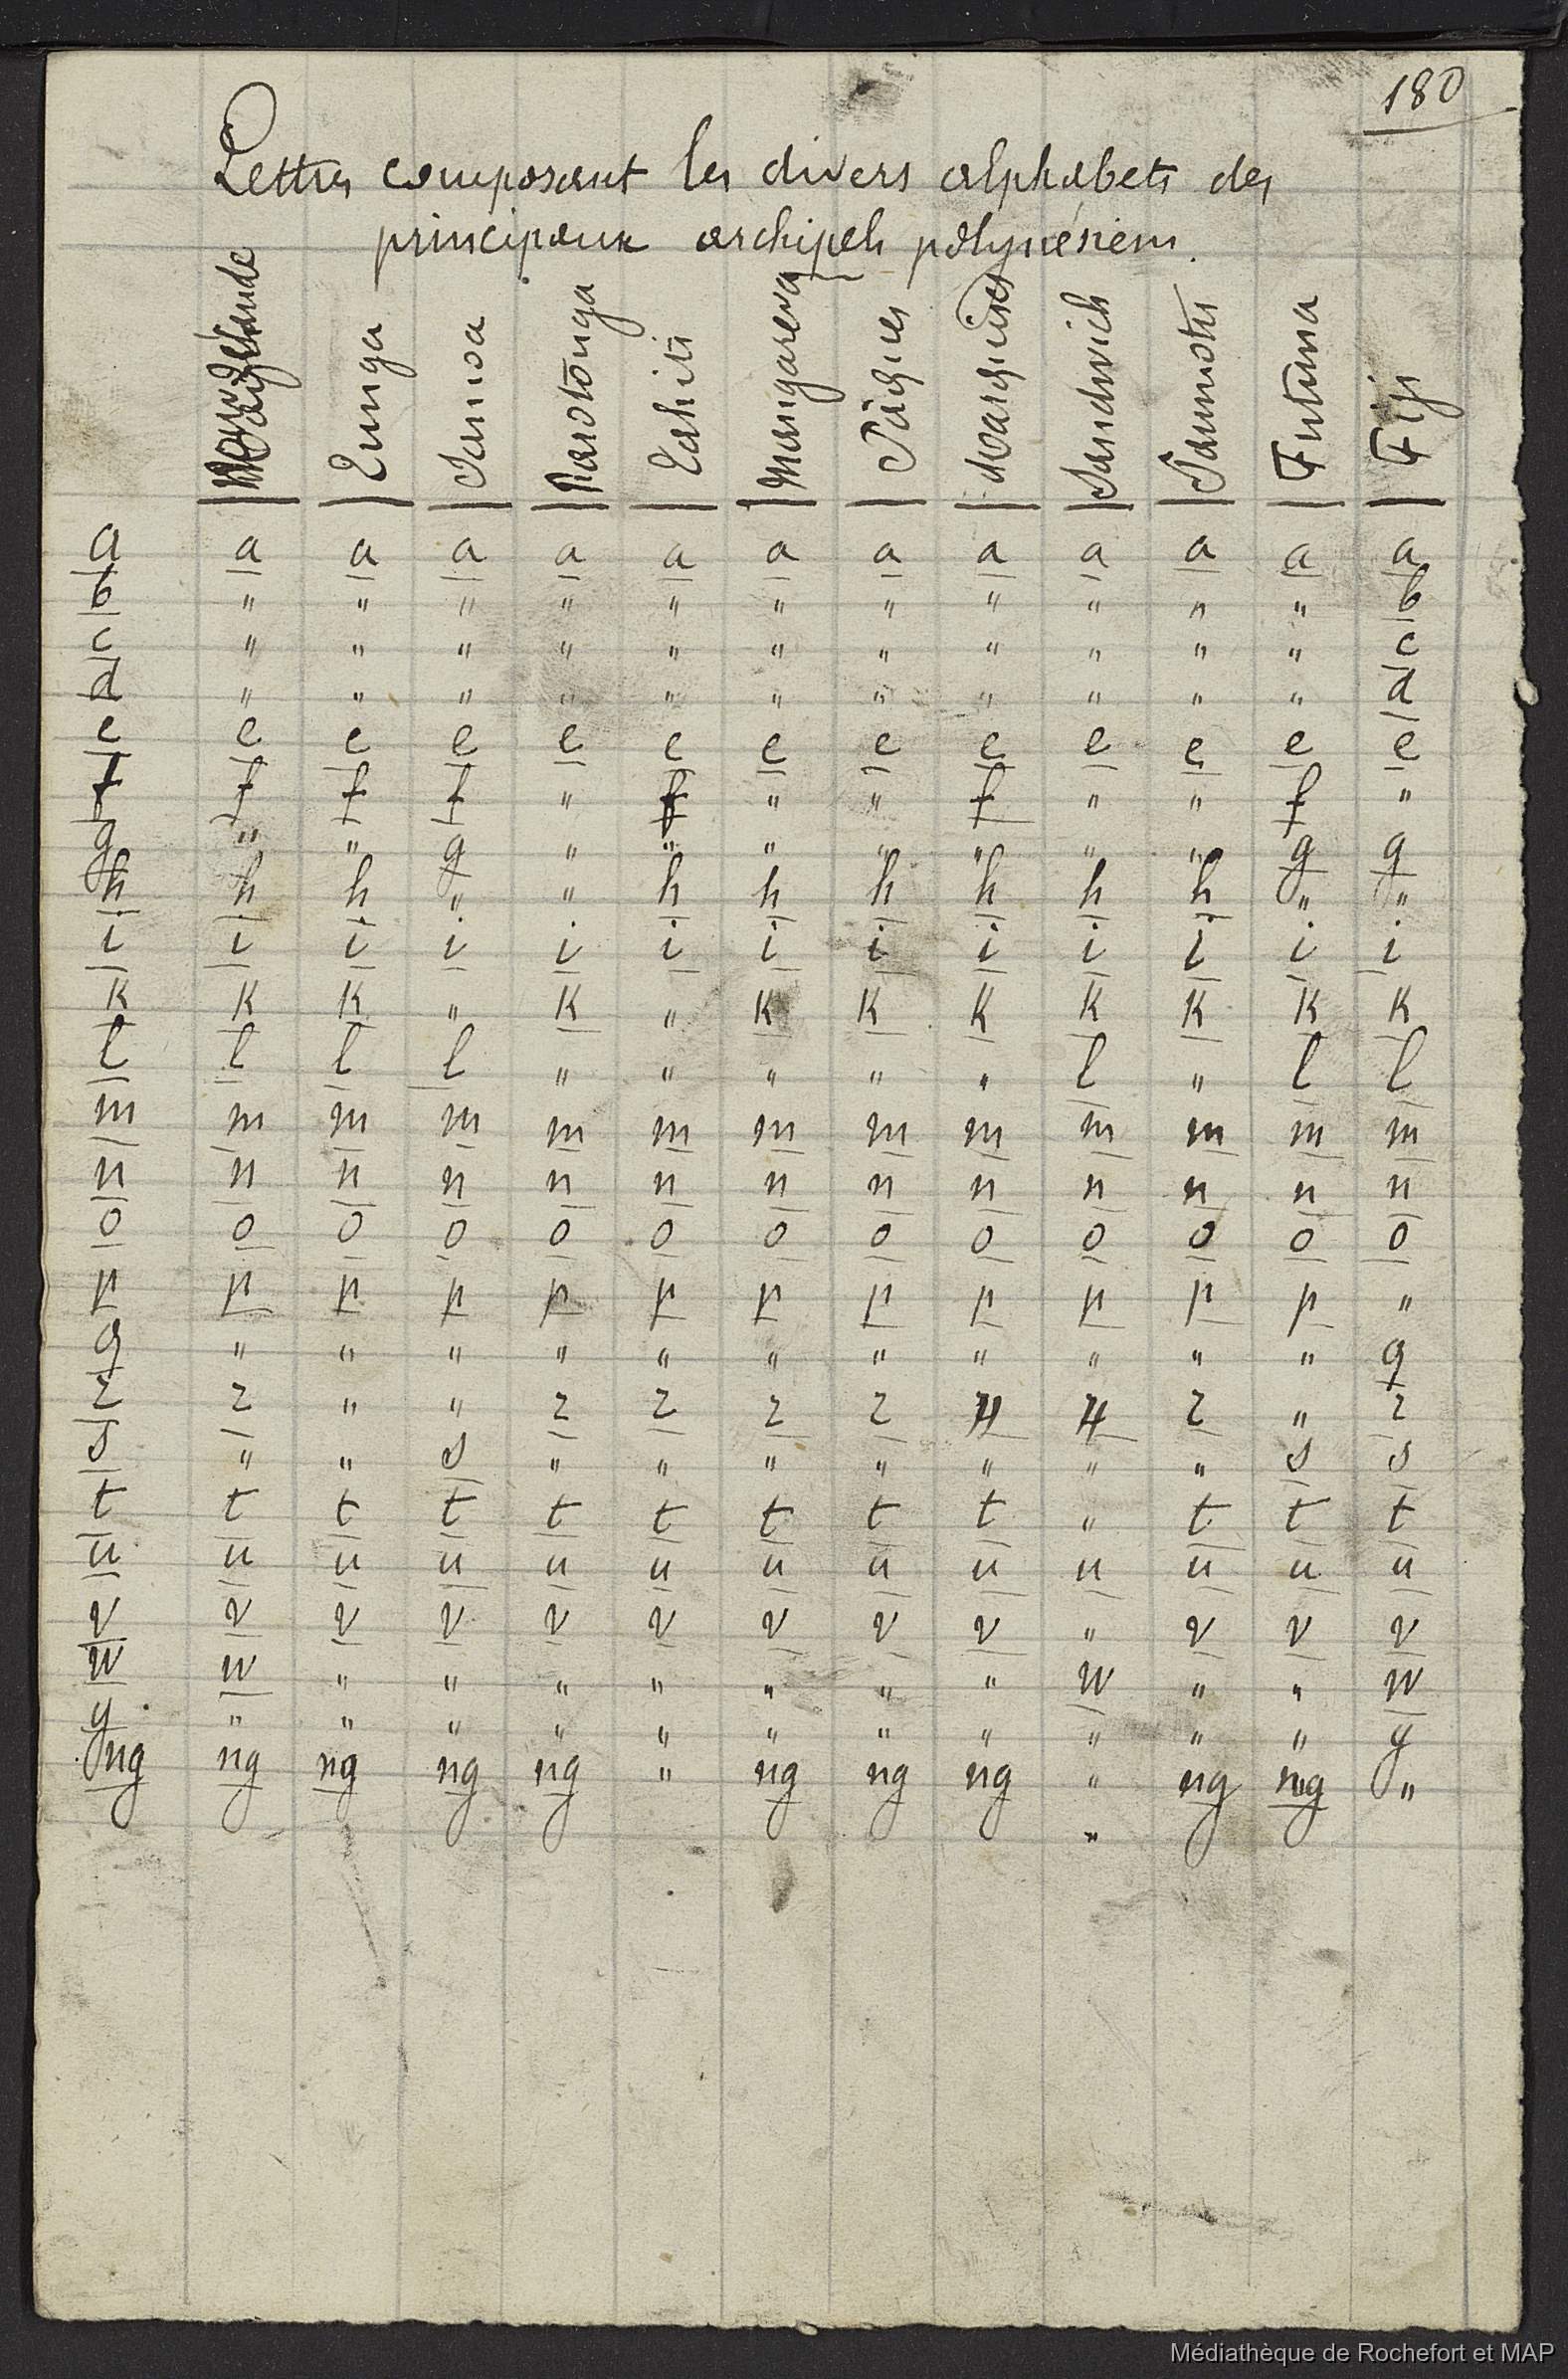 180
Lettres composant les divers alphabets des
principaux archipels polynésiens.
Zélande Tunga Samoa Rarotonga Tahiti Mangareva Pâques Marquises Sandwich Paumotu Futuna Fiji
a a a a a a a a a a a a a
b " " " " " " " " " " " b
c " " " " " " " " " " " c
d " " " " " " " " " " " d
e e e e e e e e e e e e e
f f f f " f " " f " " f "
g " " g " " " " " " " g g
h h h " " h h h h h h " "
i i i i i i i i i i i i i
k k k " k " k k k k k k k
l l l l " " " " " l " l l
m m m m m m m m m m m m m
n n n n n n n n n n n n n
o o o o o o o o o o o o o
p p p p p p p p p p p p "
q " " " " " " " " " " " q
r r " " r r r r " " r " r
s " " s " " " " " " " s s
t t t t t t t t t " t t t
u u u u u u u u u u u u u
v v v v v v v v v " v v v
w w " " " " " " " w " " w
y " " " " " " " " " " " y
ng ng ng ng ng " ng ng ng " ng ng "
"
Médiathèque de Rochefort et MAP